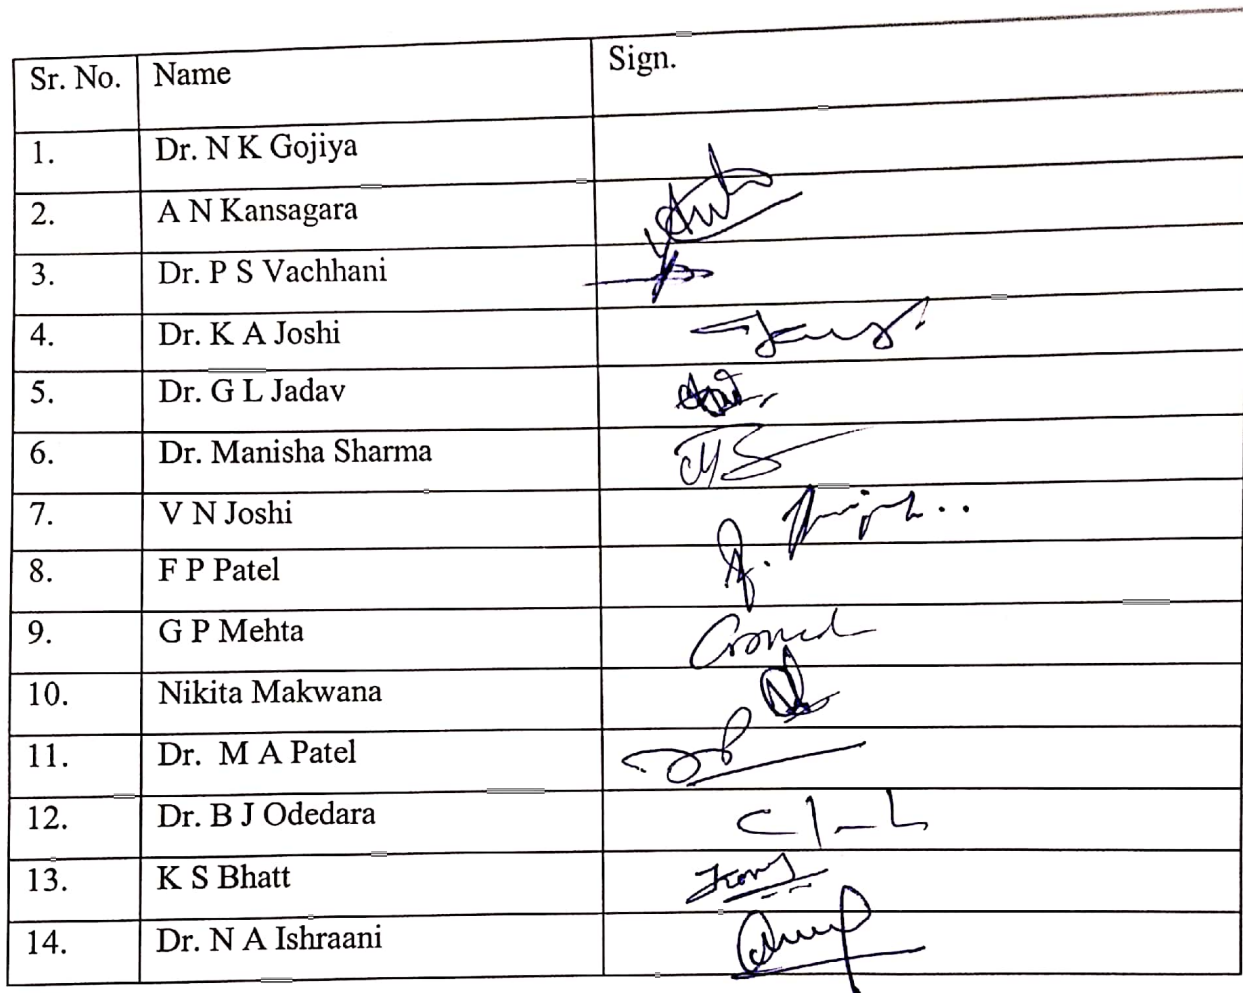 Sr. No. Name Sign.
1. Dr. N K Gojiya
2. A N Kansagara
3. Dr. P S Vachhani
4. Dr. K A Joshi
5. Dr. G L Jadav
6. Dr. Manisha Sharma
7. V N Joshi
8. F P Patel
9. G P Mehta
10. Nikita Makwana
11. Dr. M A Patel
12. Dr. B J Odedara
13. K S Bhatt
14. Dr. N A Ishraani